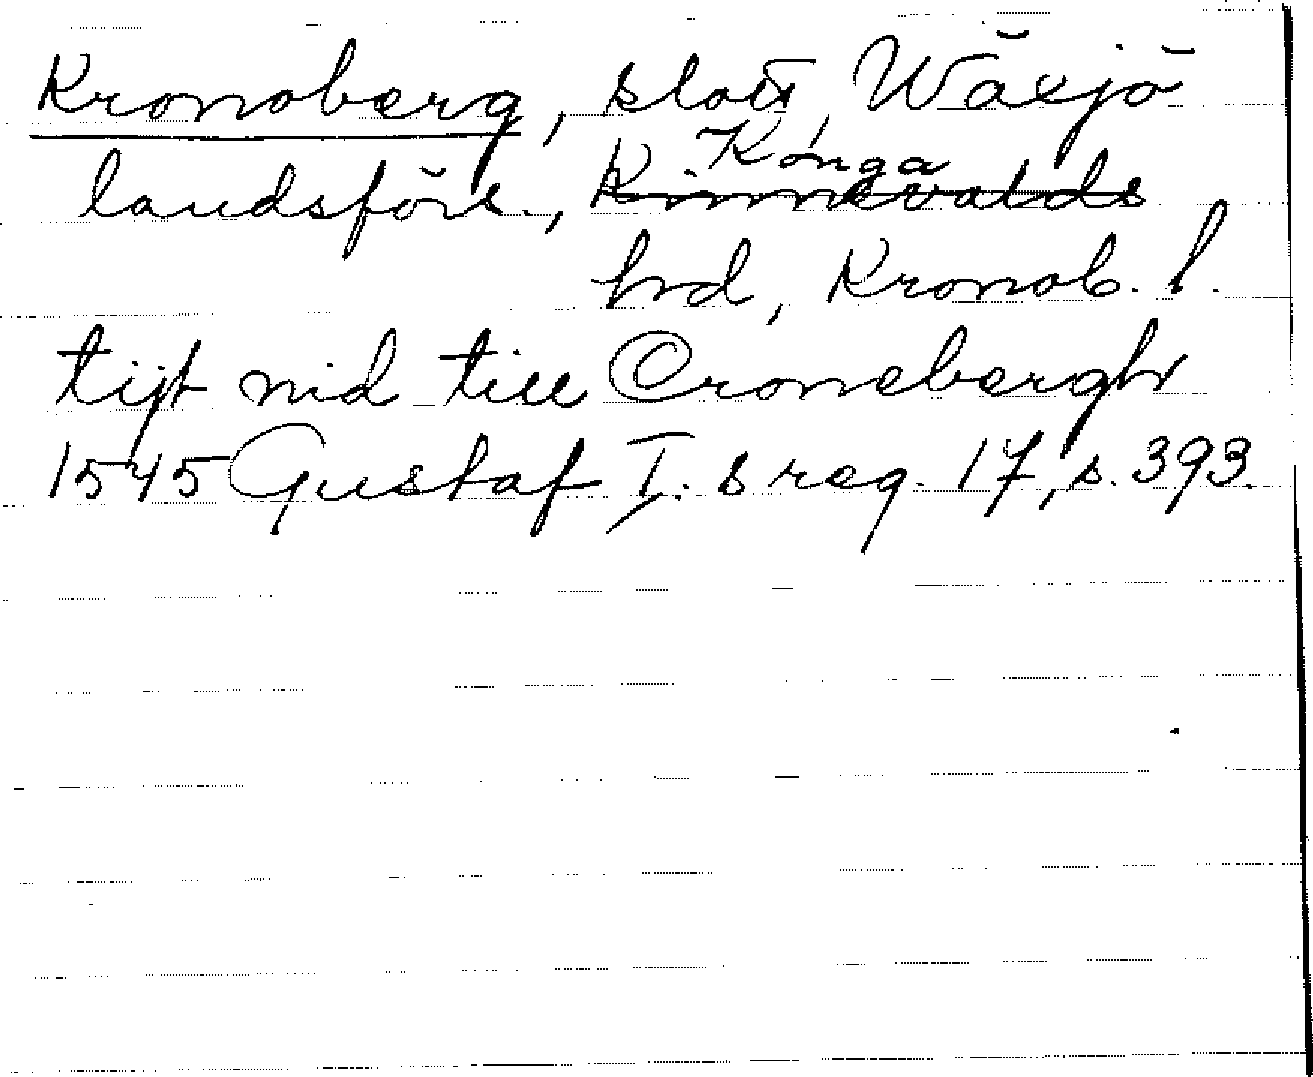 Kronoberg, slott, Wäxjö
landsförs., Konga
Kinnevalds
hrd, Kronob. l.
tijt nid till Cronebergh
1545 Gustaf I:s reg. 17, s. 393.